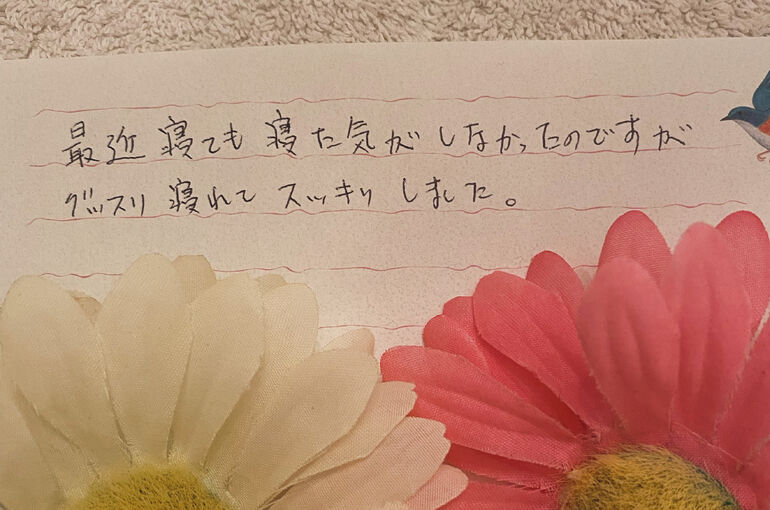 最近 寝ても 寝た気がしなかったのですが
グッスリ 寝れて スッキリ しました。